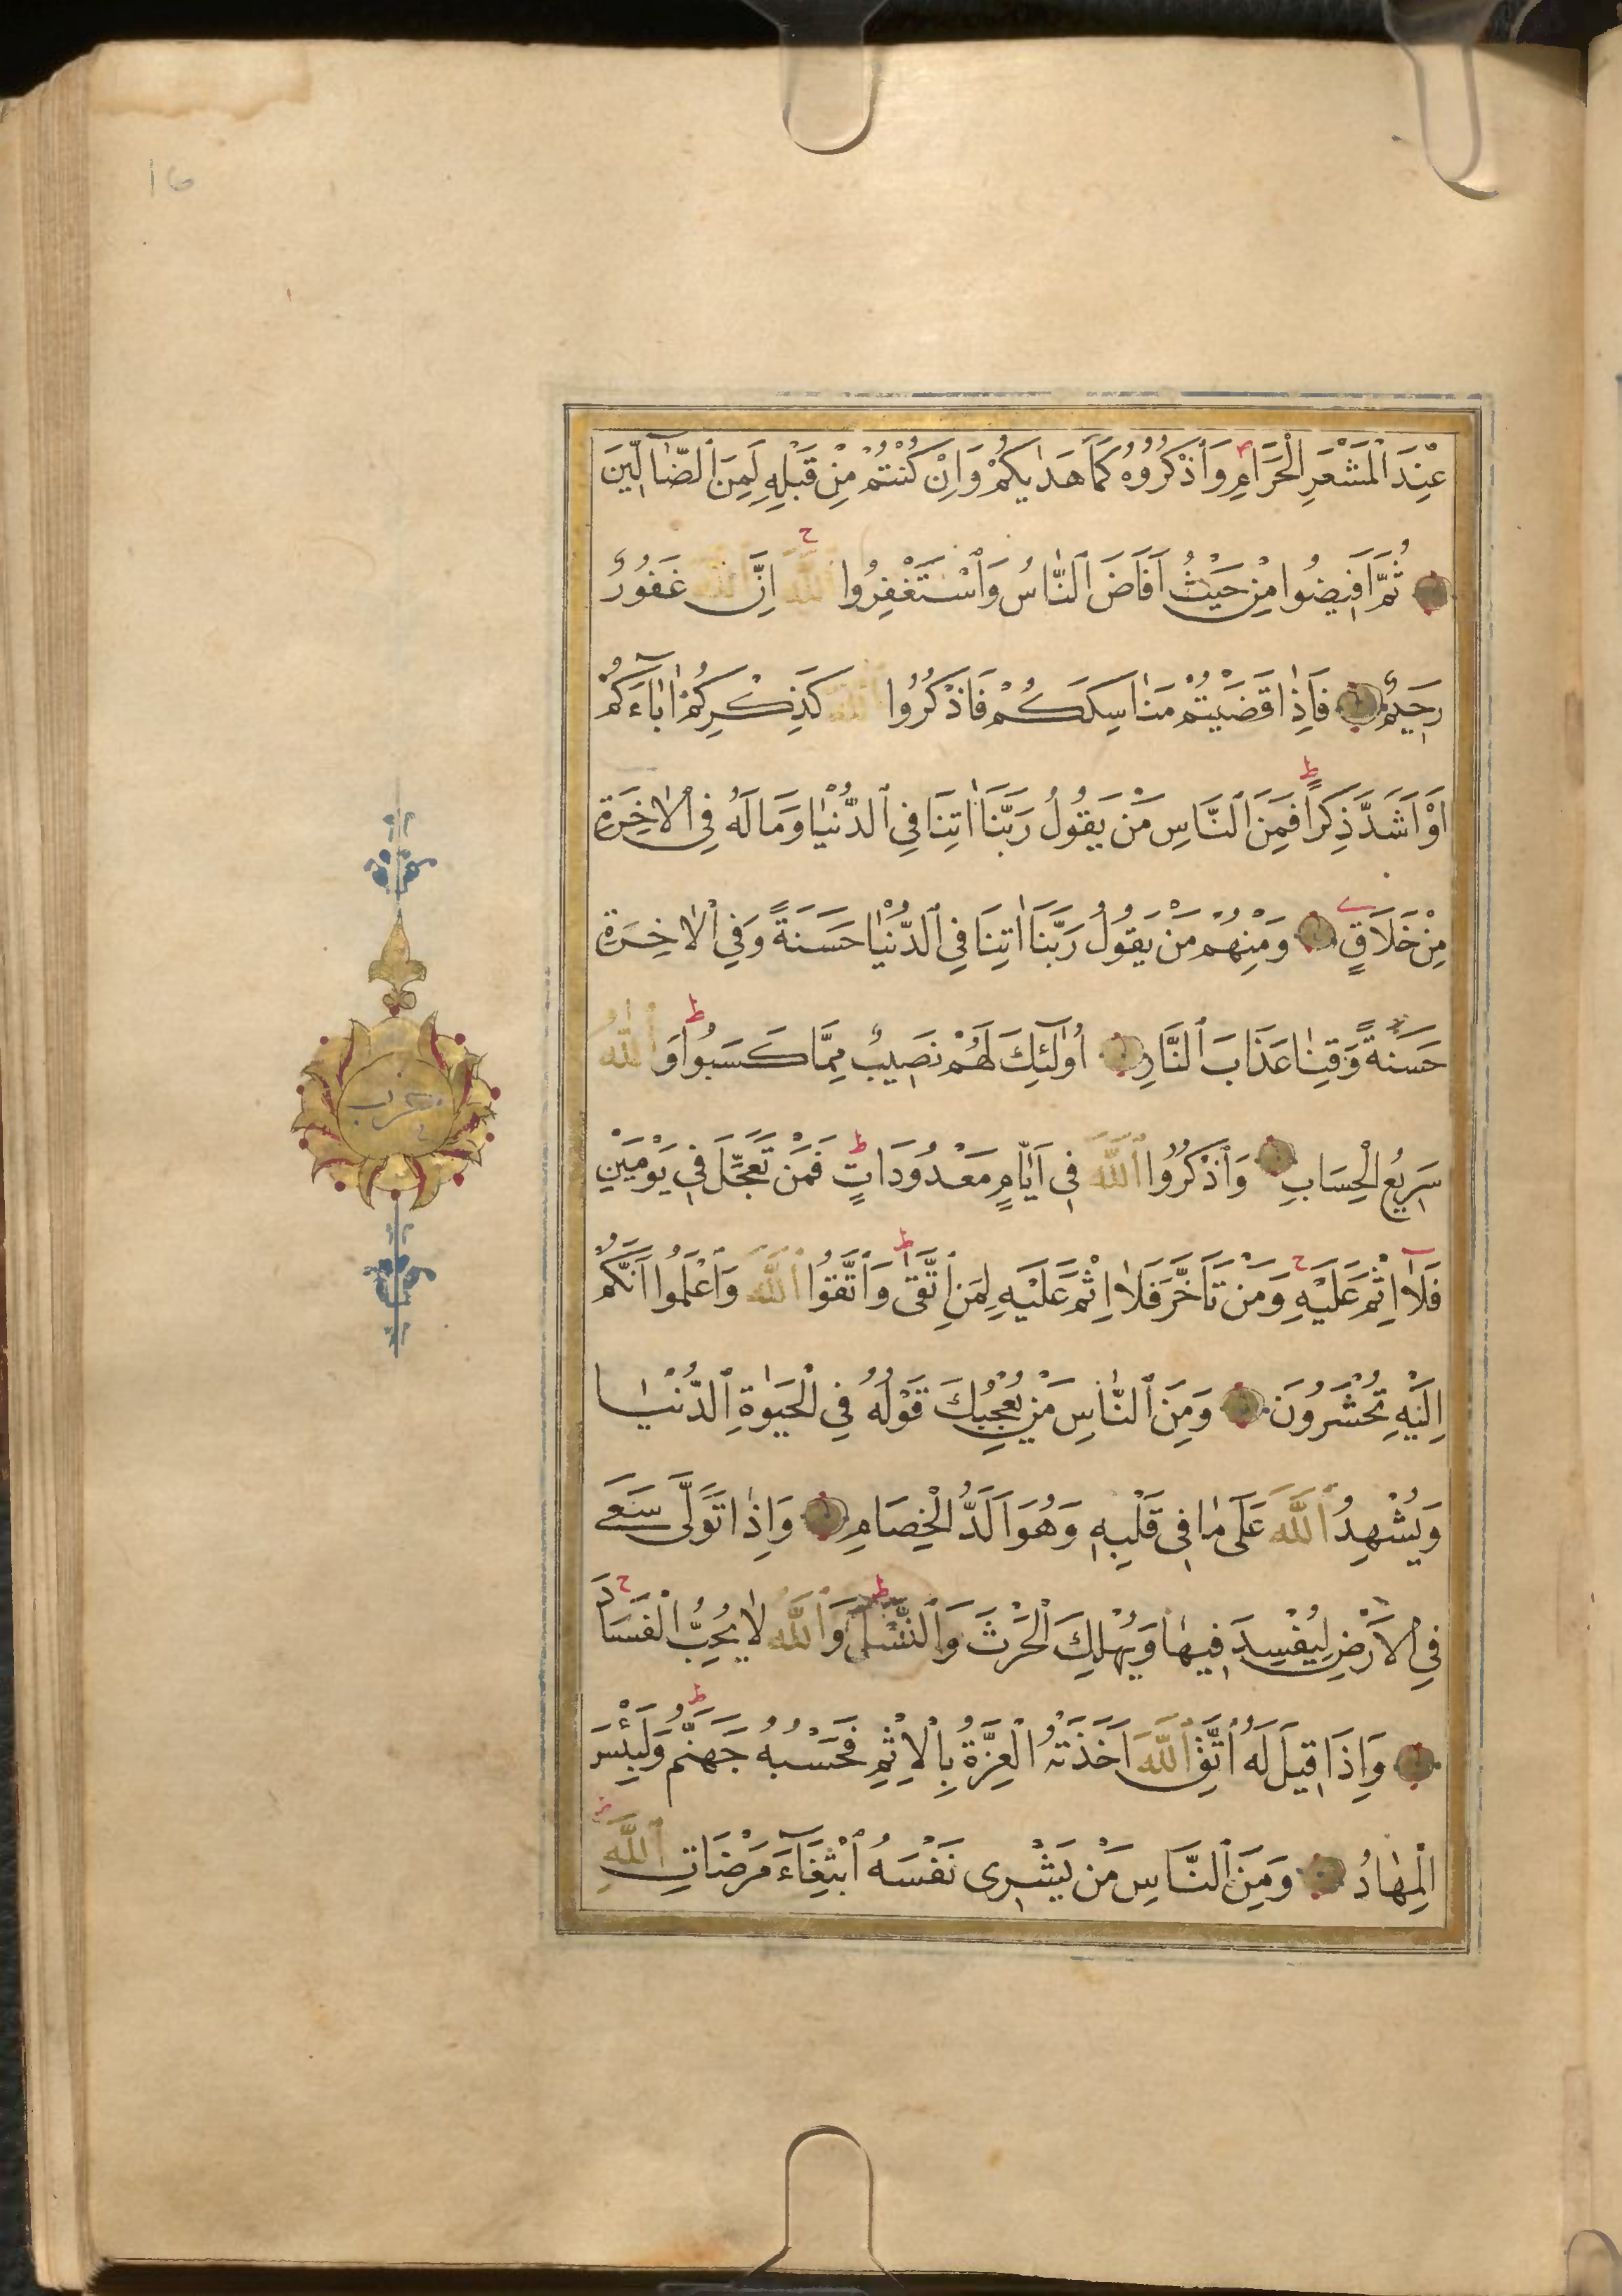 16
عِنْدَ الْمَشْعَرِ الْحَرَامِ وَاذْكُرُوهُ كَمَا هَدٰيكُمْ وَاِنْ كُنْتُمْ مِنْ قَبْلِهِ لَمِنَ الضَّٓالّٖينَ
ثُمَّ اَفٖيضُوا مِنْ حَيْثُ اَفَاضَ النَّاسُ وَاسْتَغْفِرُوا اللّٰهَ اِنَّ اللّٰهَ غَفُورٌ
رَحٖيمٌ فَاِذَا قَضَيْتُمْ مَنَاسِكَكُمْ فَاذْكُرُوا اللّٰهَ كَذِكْرِكُمْ اٰبَٓاءَكُمْ
اَوْ اَشَدَّ ذِكْرًا فَمِنَ النَّاسِ مَنْ يَقُولُ رَبَّنَا اٰتِنَا فِي الدُّنْيَا وَمَا لَهُ فِي الْاٰخِرَةِ
مِنْ خَلَاقٍ وَمِنْهُمْ مَنْ يَقُولُ رَبَّنَا اٰتِنَا فِي الدُّنْيَا حَسَنَةً وَفِي الْاٰخِرَةِ
حَسَنَةً وَقِنَا عَذَابَ النَّارِ اُولٰٓئِكَ لَهُمْ نَصٖيبٌ مِمَّا كَسَبُوا وَاللّٰهُ
سَرٖيعُ الْحِسَابِ وَاذْكُرُوا اللّٰهَ فٖي اَيَّامٍ مَعْدُودَاتٍ فَمَنْ تَعَجَّلَ فٖي يَوْمَيْنِ
فَلَٓا اِثْمَ عَلَيْهِ وَمَنْ تَاَخَّرَ فَلَا اِثْمَ عَلَيْهِ لِمَنِ اتَّقٰى وَاتَّقُوا اللّٰهَ وَاعْلَمُوا اَنَّكُمْ
اِلَيْهِ تُحْشَرُونَ وَمِنَ النَّاسِ مَنْ يُعْجِبُكَ قَوْلُهُ فِي الْحَيٰوةِ الدُّنْيَا
وَيُشْهِدُ اللّٰهَ عَلٰى مَا فٖي قَلْبِهٖ وَهُوَ اَلَدُّ الْخِصَامِ وَاِذَا تَوَلّٰى سَعٰى
فِي الْاَرْضِ لِيُفْسِدَ فٖيهَا وَيُهْلِكَ الْحَرْثَ وَالنَّسْلَ وَاللّٰهُ لَا يُحِبُّ الْفَسَادَ
وَاِذَا قٖيلَ لَهُ اتَّقِ اللّٰهَ اَخَذَتْهُ الْعِزَّةُ بِالْاِثْمِ فَحَسْبُهُ جَهَنَّمُ وَلَبِئْسَ
الْمِهَادُ وَمِنَ النَّاسِ مَنْ يَشْرٖى نَفْسَهُ ابْتِغَٓاءَ مَرْضَاتِ اللّٰهِ
حزب